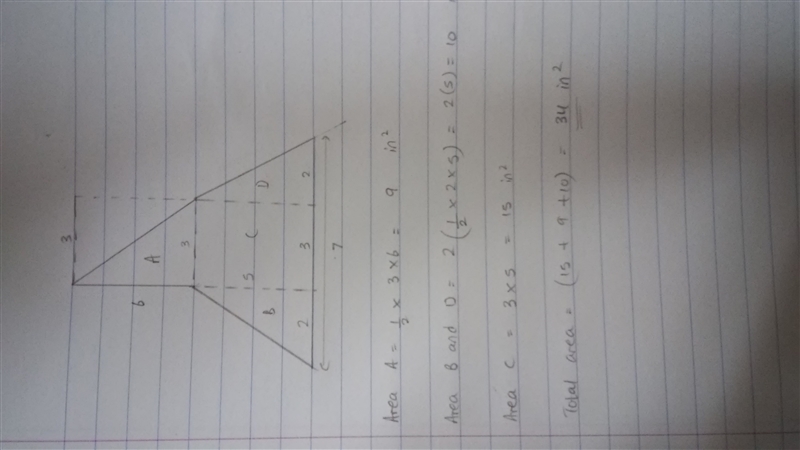 3
6
A
3
5
C
B
D
2
3
2
7
Area A = 1/2 × 3 × 6 = 9 in²
Area B and D = 2 (1/2 × 2 × 5) = 2(5) = 10
Area C = 3 × 5 = 15 in²
Total area = (15 + 9 + 10) = 34 in²